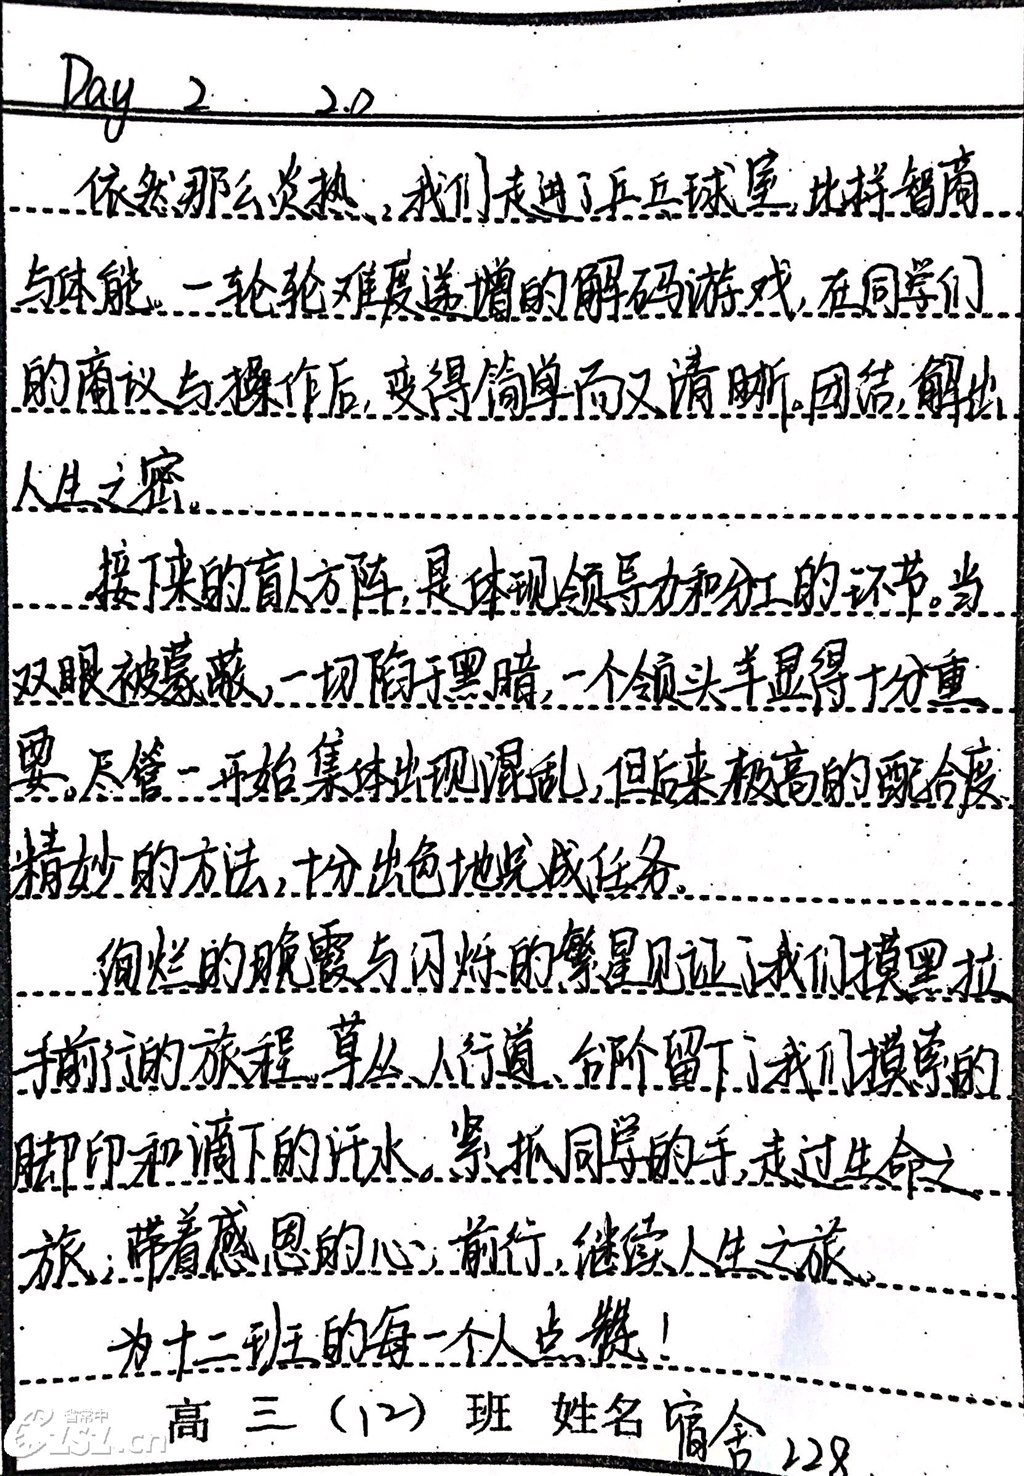 Day 2 2.0
依然那么炎热，我们走进了乒乓球室，比拼智商
与体能。一轮轮难度递增的解码游戏，在同学们
的商议与操作后，变得简单而又清晰。团结，解出
人生之密。
接下来的盲人方阵，是体现领导力和分工的环节。当
双眼被蒙蔽，一切陷于黑暗，一个领头羊显得十分重
要。尽管一开始集体出现混乱，但后来极高的配合度
精妙的方法，十分出色地完成任务。
绚烂的晚霞与闪烁的繁星见证了我们摸黑拉
手前行的旅程。草丛、人行道、台阶留下了我们摸索的
脚印和滴下的汗水。紧抓同学的手，走过生命之
旅；带着感恩的心，前行，继续人生之旅。
为十二班的每一个人点赞！
高三（12）班 姓名 宿舍228
省常中
CZSZ.cn